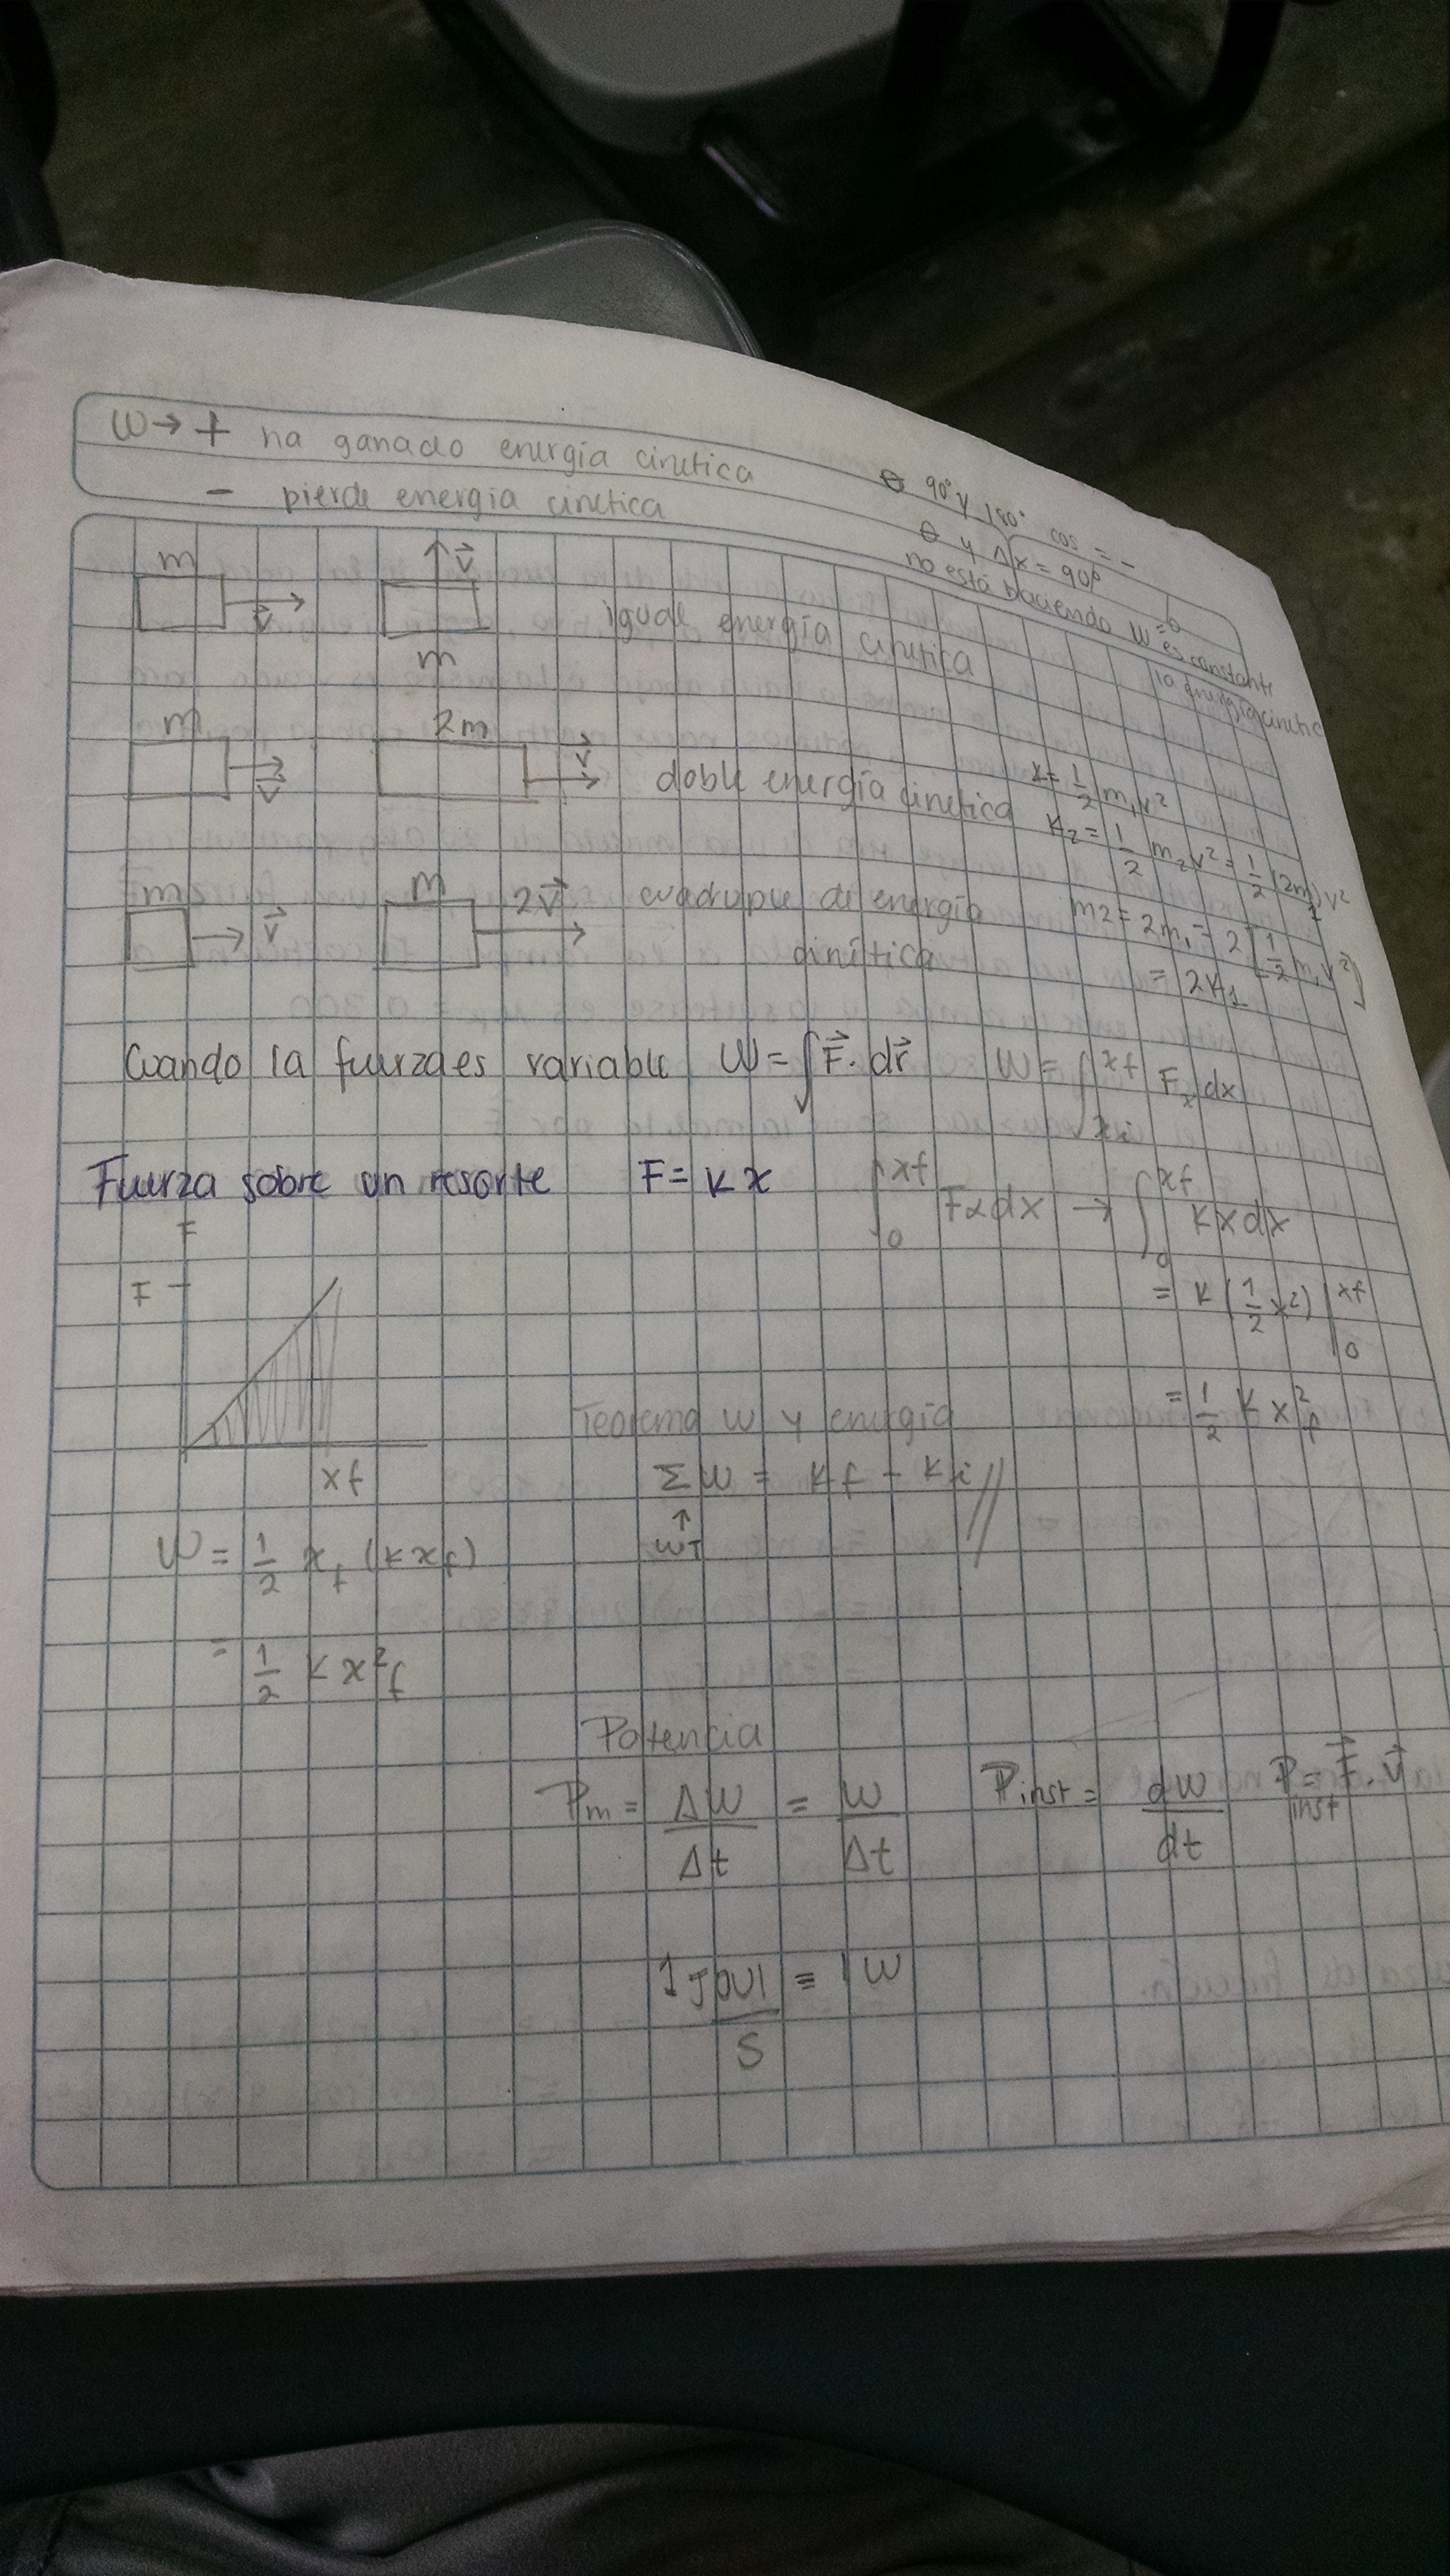 W → + ha ganado energía cinetica
- pierde energía cinetica
θ 90° y 180° cos = -
θ y Δx = 90°
no está haciendo W=0
es constante
la energía cinetica
m
v⃗
v⃗
m
igual energía cinetica
m
v⃗
2m
v⃗
doble energía cinetica
K = 1/2 m₁v²
K₂ = 1/2 m₂v² = 1/2 (2m₁)v²
m
v⃗
m
2v⃗
cuadruple de energía
cinética
m2 = 2m₁ = 2 [1/2 m₁v²]
= 2K₁
Cuando la fuerza es variable W = ∫ F⃗ · dr⃗ W = ∫xi^xf Fx dx
Fuerza sobre un resorte F = k x ∫0^xf Fx dx → ∫0^xf kx dx
= k (1/2 x²) |0^xf
= 1/2 k x²f
F
F
xf
W = 1/2 xf (k xf)
= 1/2 k x²f
Teorema W y energía
ΣW = Kf - Ki //
↑
WT
Potencia
Pm = ΔW/Δt = W/Δt Pinst = dW/dt Pinst = F⃗ · v⃗
1 Joul/s = 1 W